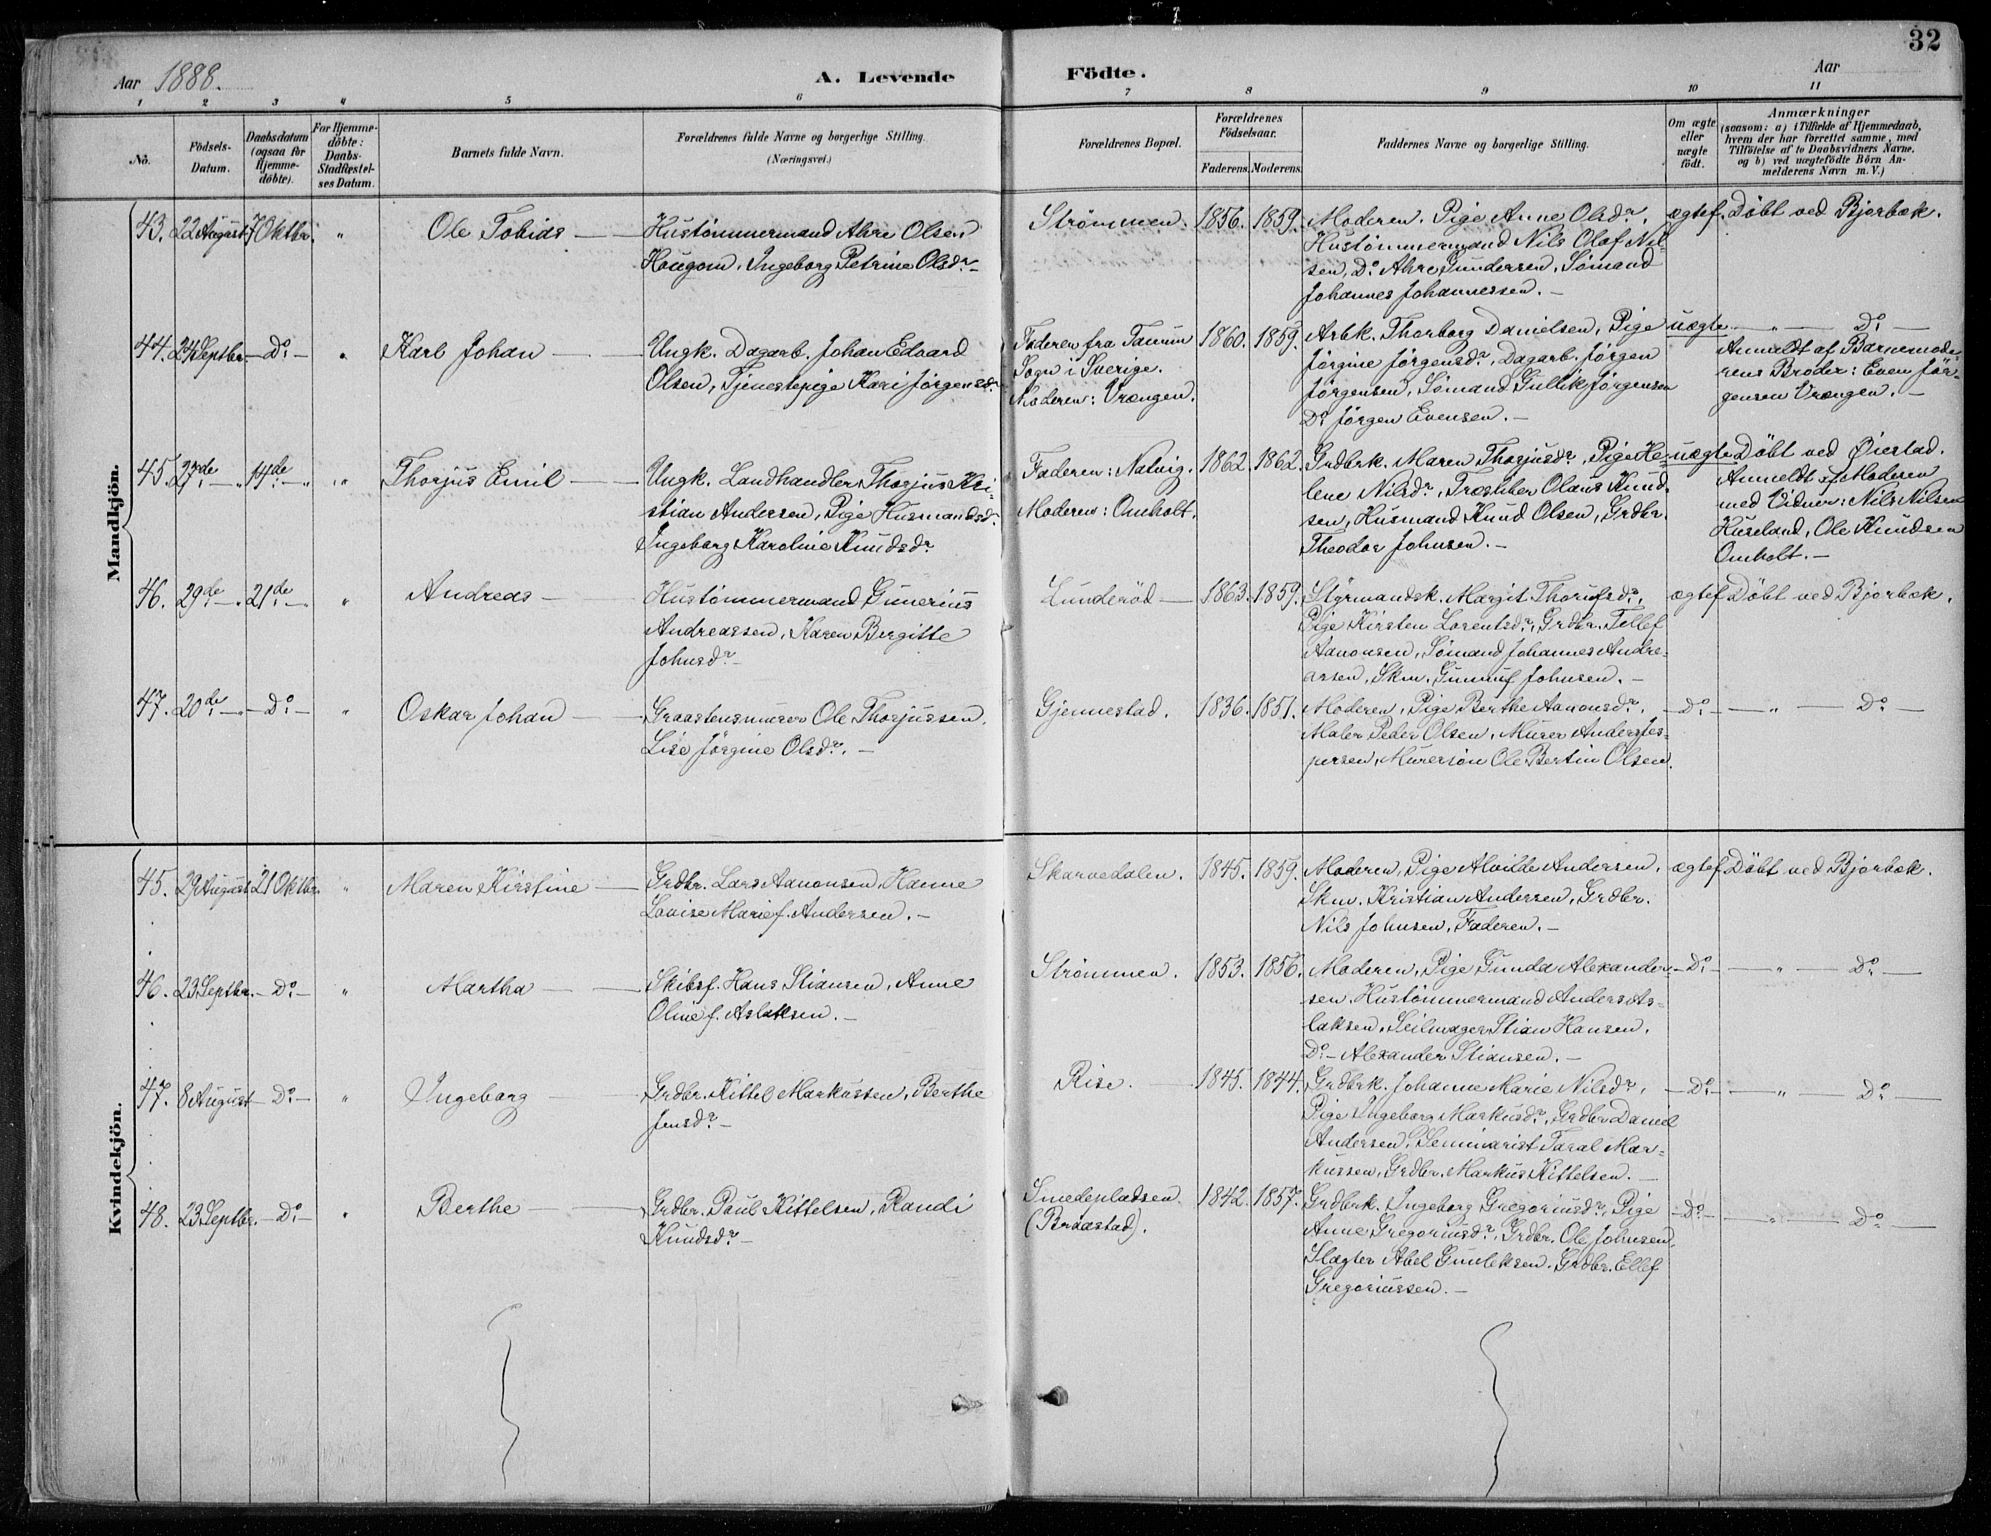 32
Aar 1888.
A. Levende Födte.
Aar
1 2 3 4 5 6 7 8 9 10 11
No.
Födsels-Datum.
Daabsdatum (ogsaa for Hjemme-döbte).
For Hjemme-döbte: Daabs-Stadfæstel-ses Datum.
Barnets fulde Navn.
Forældrenes fulde Navne og borgerlige Stilling.
(Næringsvei.)
Forældrenes Bopæl.
Forældrenes Födselsaar.
Faderens. Moderens.
Faddernes Navne og borgerlige Stilling.
Om ægte eller uægte födt.
Anmærkninger
(saasom: a) i Tilfælde af Hjemmedaab, hvem der har forrettet samme, med Tilföielse af to Daabsvidners Navne, og b) ved uægtefödte Börn An-melderens Navn m. V.)
Mandkjön.
43. 22 August 7 Oktbr. " Ole Tobias
Hustömmermand Ahre Olsen
Hougom, Ingeborg Petrine Olsdr. –
Strømmen. 1856. 1859.
Moderen. Pige Anne Olsdr.,
Hustömmermand Nils Olaf Nil-
sen, Do Ahre Gundersen, Sømand
Johannes Johannessen. –
ægtef. Döbt ved Bjorbæk.
44. 24 Septbr. – Do. – " Karl Johan
Ungk. Dagarb. Johan Edvard
Olsen, Tjenestepige Kari Jørgensdr.
Faderen fra Tanum
Sogn i Sverige.
Moderen: Vrængen.
1860. 1859.
Arbk. Thorborg Danielsen, Pige
Jørgine Jørgensdr., Dagarb. Jørgen
Jørgensen, Sømand Gullik Jørgensen
Do Jørgen Evensen. –
uægte " – Do. –
Anmeldt af Barnemode-
rens Broder: Even Jör-
gensen Vrængen. –
45. 27de – " 14de – " " Thorjus Emil
Ungk. Landhandler Thorjus Kri-
stian Andersen, Pige Husmandsdr.
Ingeborg Karoline Knudsdr.
Faderen: Natvig.
Moderen: Omholt.
1862. 1862.
Grdbrk. Maren Thorjusdr., Pige He-
lene Nilsdr., Træskiber Olaus Knud-
sen, Husmand Knud Olsen, Grdbr.
Theodor Johnsen. –
uægte Döbt ved Øiestad.
Anmeldt af Moderen
med Vidner: Nils Nilsen
Huseland, Ole Knudsen
Omholt. –
46. 29de – " 21de – " Andreas
Hustömmermand Gunerius
Andreassen, Karen Bergitte
Johnsdr. –
Lunderød 1863. 1859.
Styrmandsk. Margit Thorufsdr.,
Pige Kirsten Lorentsdr., Grdbr. Tellef
Aanonsen, Sømand Johannes Andre-
assen, Skm. Gunnuf Johnsen. –
ægtef Döbt ved Bjorbæk.
47. 20de – " – Do. – " Oskar Johan
Graastensmurer Ole Thorjussen.
Lise Jørgine Olsdr. –
Gjennestad. 1836. 1851.
Moderen, Pige Berthe Aanonsdr.,
Maler Peder Olsen, Murer Anders Jes-
persen, Murersön Ole Bertin Olsen.
– Do. – " – Do. –
Kvindekjön.
45. 29 August 21 Oktbr. " Maren Kirstine
Grdbr. Lars Aanonsen, Hanne
Lovise Marie f. Andersen. –
Skarvedalen. 1845. 1859.
Moderen, Pige Alvilde Andersen,
Skm. Kristian Andersen, Grdbr.
Nils Johnsen, Faderen. –
ægtef Döbt ved Bjorbæk.
46. 23 Septbr. – Do. – " Martha
Skibsf. Hans Stiansen, Anne
Oline f. Aslaksen. –
Strømmen. 1853. 1856.
Moderen, Pige Gunda Alexander-
sen, Hustömmermand Anders As-
laksen, Seilmager Stian Hansen,
Do – Alexander Stiansen. –
– Do. – " – Do. –
47. 8 August – Do. – " Ingeborg
Grdbr. Kittel Markussen, Berthe
Jensdr. –
Rise. 1845. 1844.
Grdbrk. Johanne Marie Nilsdr.,
Pige Ingeborg Markusdr., Grdbr. Daniel
Andersen, Seminarist Taral Mar-
kussen, Grdbr. Markus Kittelsen. –
– Do. – " – Do. –
48. 23 Septbr. – Do. – " Berthe
Grdbr. Paul Kittelsen, Randi
Knudsdr. –
Smedepladsen
(Braastad).
1842. 1857.
Grdbrk. Ingeborg Gregoriusdr., Pige
Anne Gregoriusdr., Grdbr. Ole Johnsen,
Slagter Abel Gunleksen. Grdbr. Ellef
Gregoriussen. –
– Do. – " – Do. –